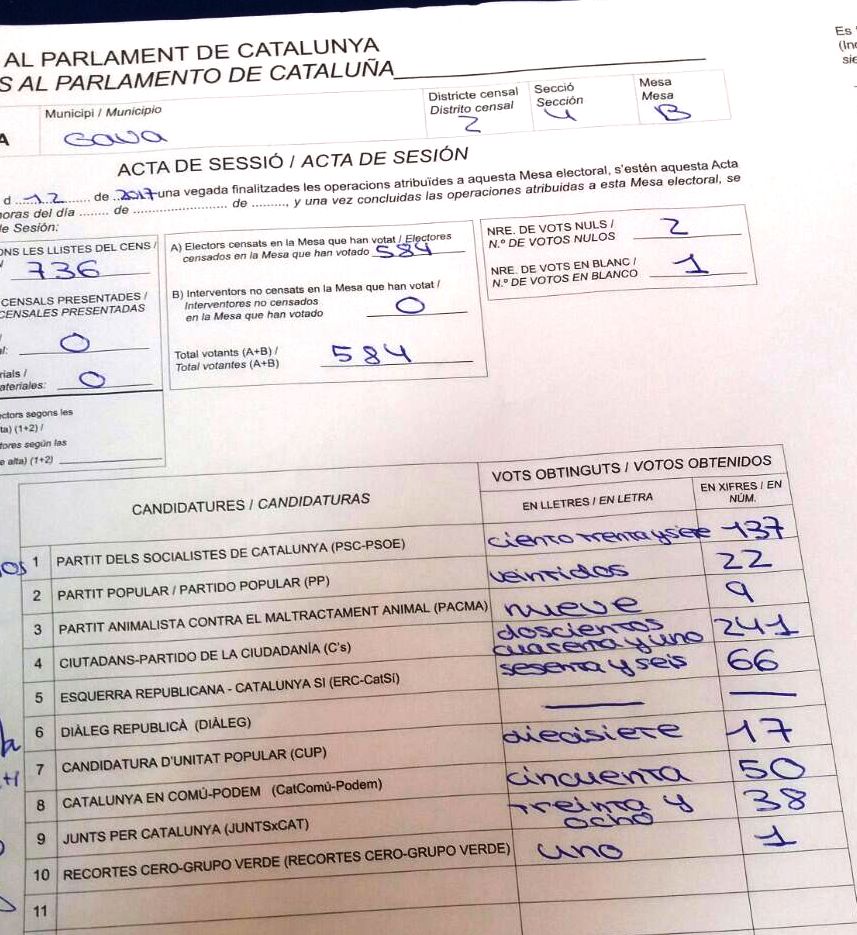 AL PARLAMENT DE CATALUNYA
S AL PARLAMENTO DE CATALUÑA
Es
(In
sie
A
Municipi / Municipio
Gava
Districte censal
Distrito censal
2
Secció
Sección
4
Mesa
Mesa
B
ACTA DE SESSIÓ / ACTA DE SESIÓN
d 12 de 2017 una vegada finalitzades les operacions atribuïdes a aquesta Mesa electoral, s'estén aquesta Acta
horas del día ........ de ........................ de ........., y una vez concluidas las operaciones atribuidas a esta Mesa electoral, se
de Sesión:
ONS LES LLISTES DEL CENS /
736
CENSALS PRESENTADES /
CENSALES PRESENTADAS
al: 0
rials /
ateriales: 0
ectors segons les
ta) (1+2) /
tores según las
e alta) (1+2)
A) Electors censats en la Mesa que han votat / Electores
censados en la Mesa que han votado 584
B) Interventors no censats en la Mesa que han votat /
Interventores no censados
en la Mesa que han votado 0
Total votants (A+B) /
Total votantes (A+B) 584
NRE. DE VOTS NULS /
N.º DE VOTOS NULOS 2
NRE. DE VOTS EN BLANC /
N.º DE VOTOS EN BLANCO 1
CANDIDATURES / CANDIDATURAS
VOTS OBTINGUTS / VOTOS OBTENIDOS
EN LLETRES / EN LETRA
EN XIFRES / EN
NÚM.
1 PARTIT DELS SOCIALISTES DE CATALUNYA (PSC-PSOE) ciento treinta y siete 137
2 PARTIT POPULAR / PARTIDO POPULAR (PP) veintidos 22
3 PARTIT ANIMALISTA CONTRA EL MALTRACTAMENT ANIMAL (PACMA) nueve 9
4 CIUTADANS-PARTIDO DE LA CIUDADANÍA (C's) doscientos cuarenta y uno 241
5 ESQUERRA REPUBLICANA - CATALUNYA SI (ERC-CatSí) sesenta y seis 66
6 DIÀLEG REPUBLICÀ (DIÀLEG)
7 CANDIDATURA D'UNITAT POPULAR (CUP) diecisiete 17
8 CATALUNYA EN COMÚ-PODEM (CatComú-Podem) cincuenta 50
9 JUNTS PER CATALUNYA (JUNTSxCAT) treinta y ocho 38
10 RECORTES CERO-GRUPO VERDE (RECORTES CERO-GRUPO VERDE) uno 1
11